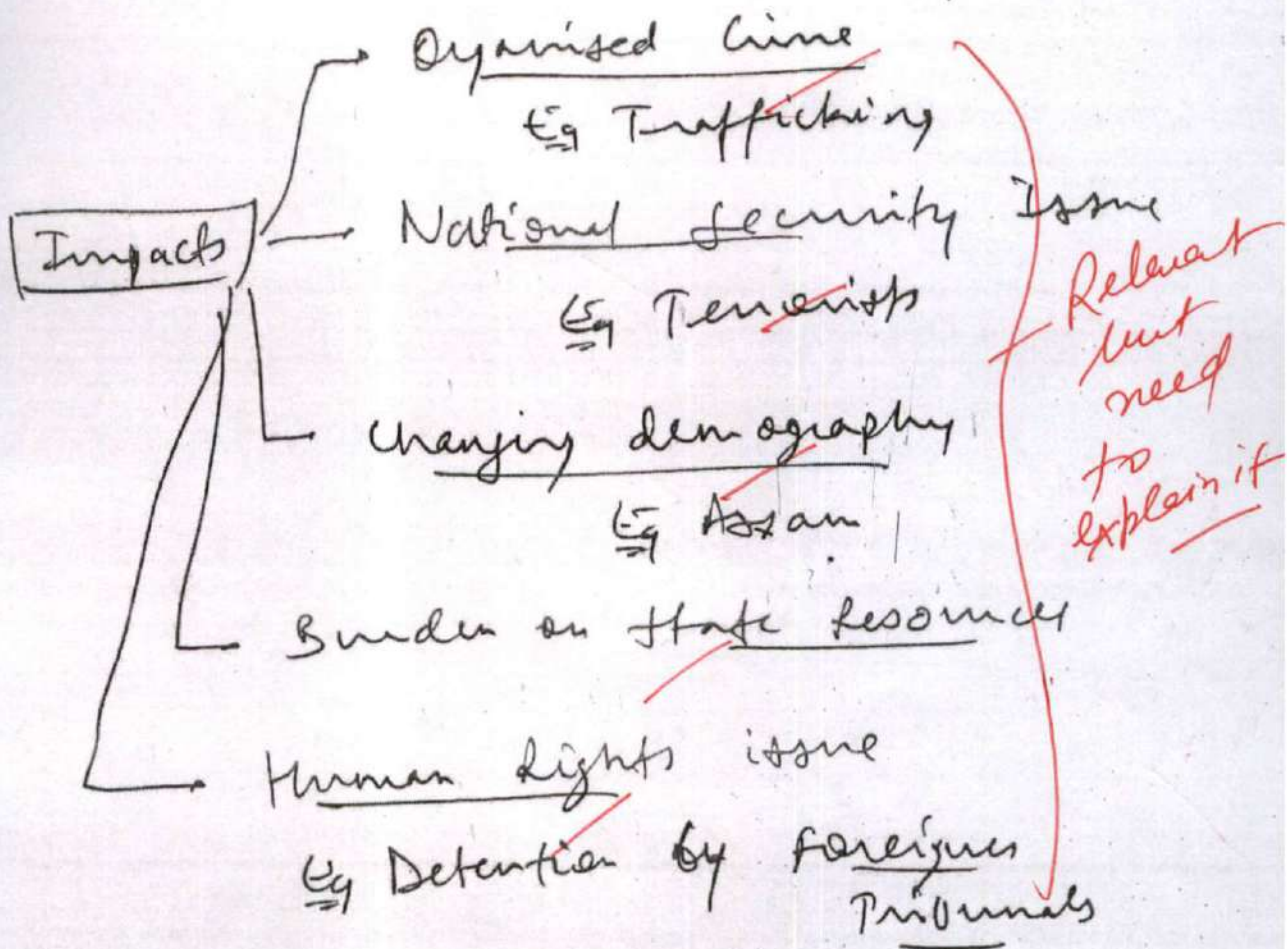 Organised Crime
Eg Trafficking
National Security Issue
Impacts
Eg Terrorists
Changing demography
Eg Assam
Burden on State Resources
Human Rights issue
Eg Detention by Foreigners
Tribunals
Relevant
but
need
to
explain it